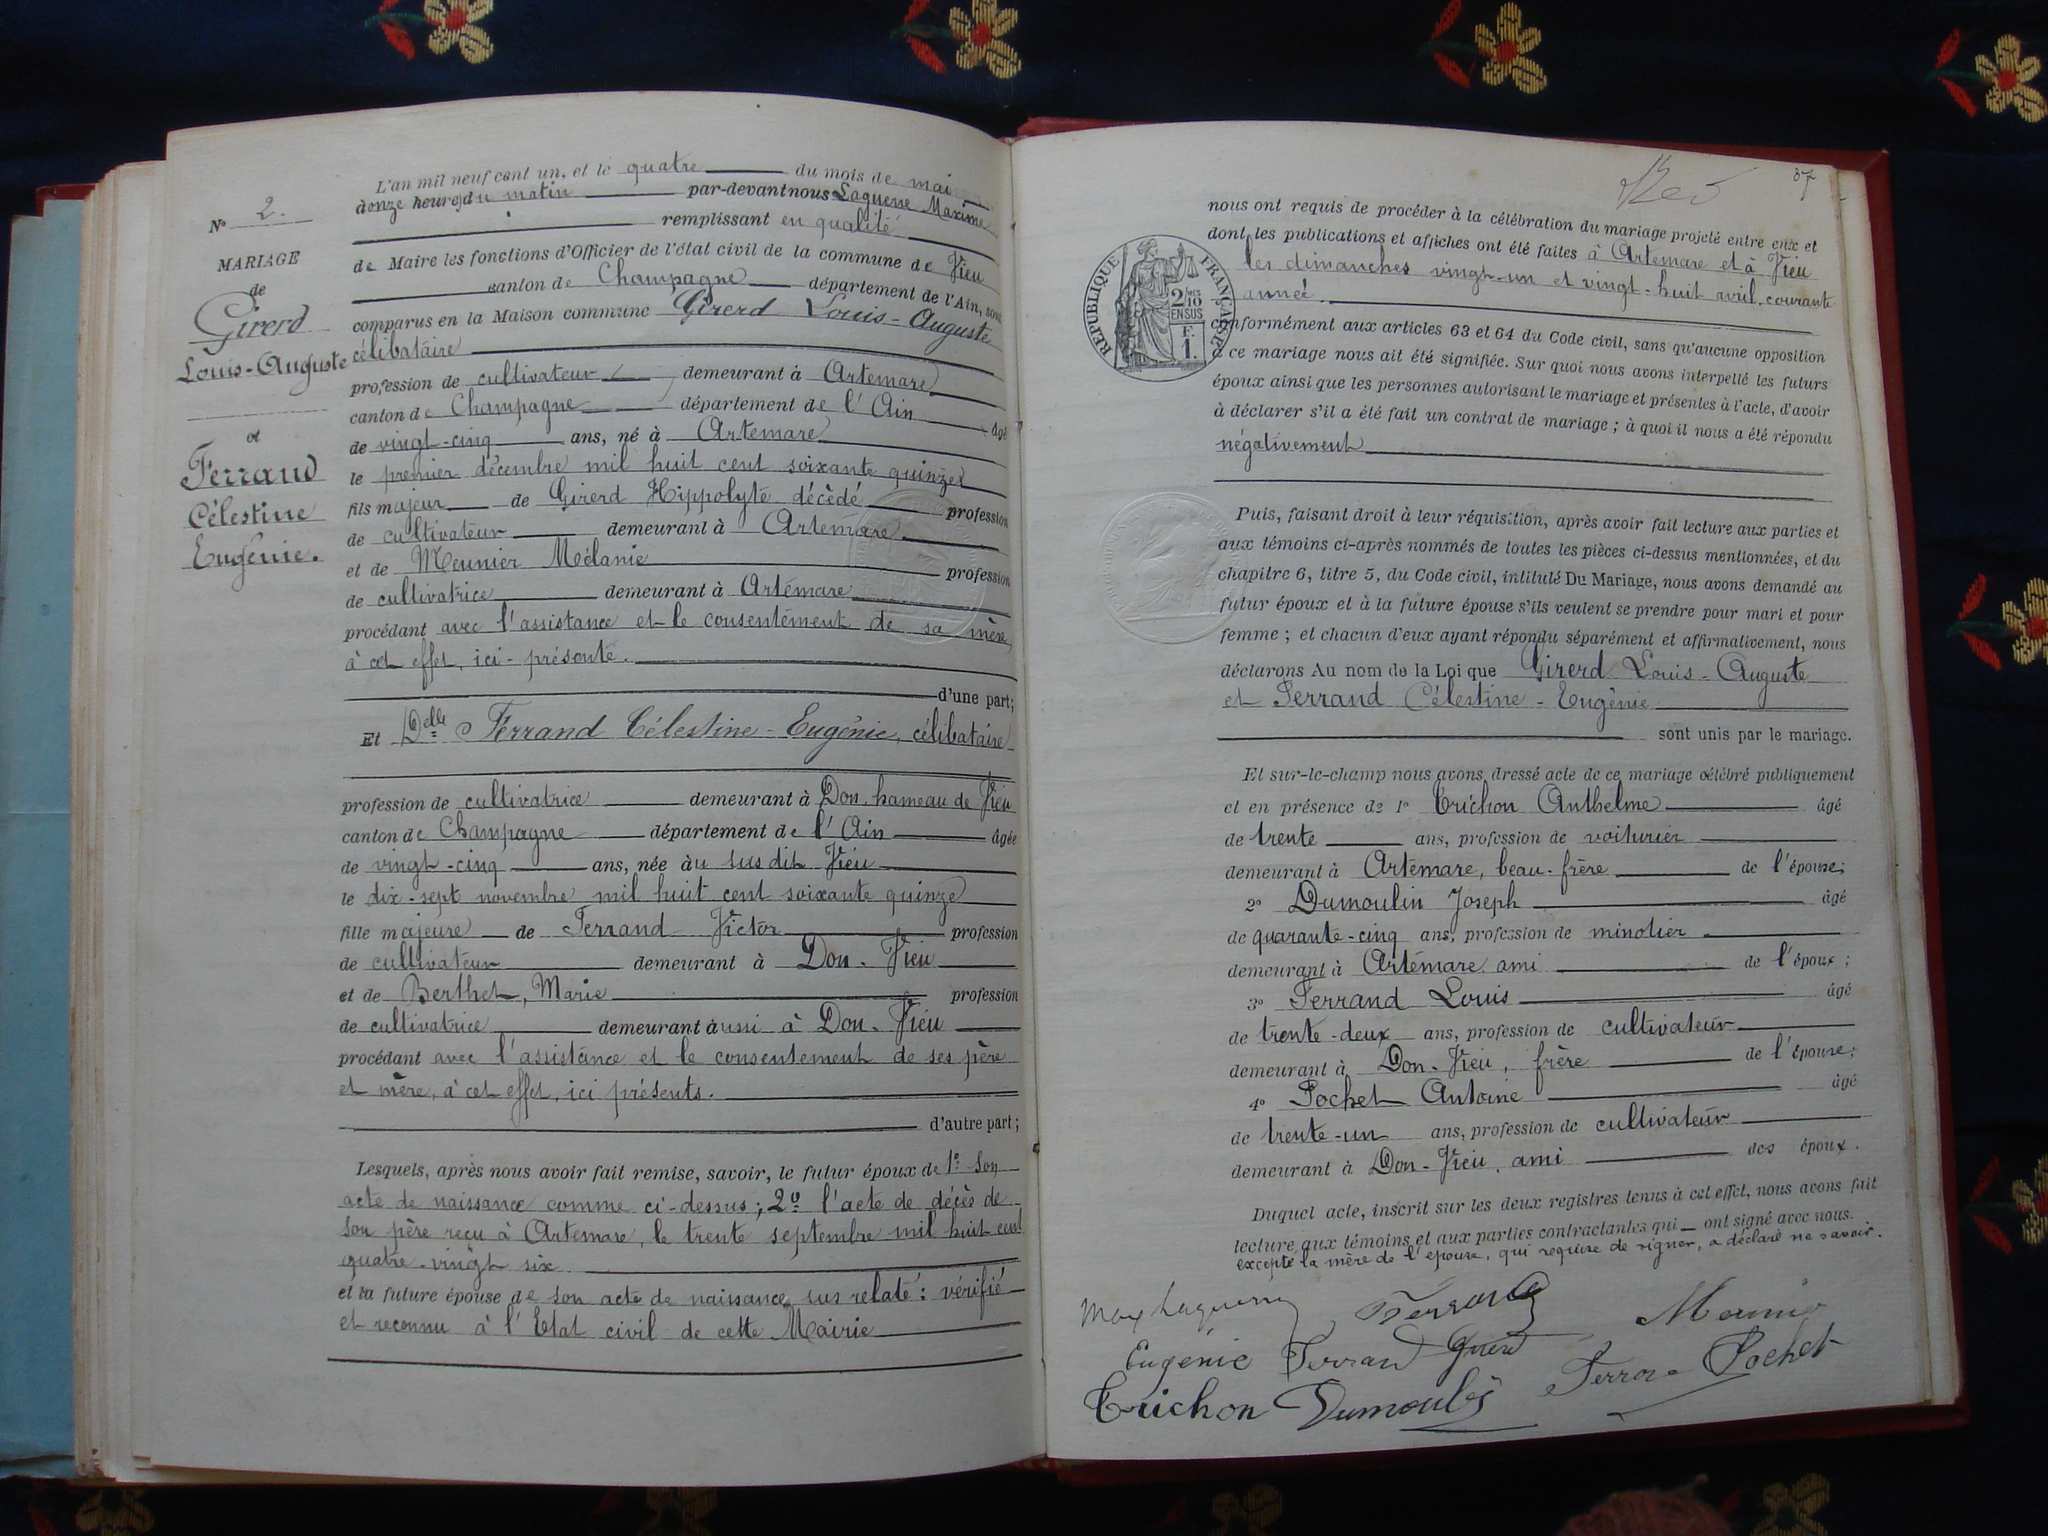 N° 2.
MARIAGE
de
Girerd
Louis-Auguste
et
Ferrand
Célestine
Eugénie.
L'an mil neuf cent un, et le quatre du mois de mai
donze heures du matin par-devant nous Laguerre Maxime
remplissant en qualité
de Maire les fonctions d'Officier de l'état civil de la commune de Vieu
canton de Champagne département de l'Ain, sont
comparus en la Maison commune Girerd Louis-Auguste
célibataire
profession de cultivateur demeurant à Artemare
canton de Champagne département de l'Ain âgé
de vingt-cinq ans, né à Artemare
le premier décembre mil huit cent soixante quinze
fils majeur de Girerd Hippolyte décédé profession
de cultivateur demeurant à Artemare
et de Meunier Mélanie profession
de cultivatrice demeurant à Artémare
procédant avec l'assistance et le consentement de sa mère,
à cet effet, ici-présente.
d'une part;
Et Delle Ferrand Célestine-Eugénie, célibataire
profession de cultivatrice demeurant à Don, hameau de Vieu
canton de Champagne département de l'Ain âgée
de vingt-cinq ans, née àu susdit Vieu
le dix-sept novembre mil huit cent soixante quinze
fille majeure de Ferrand Victor profession
de cultivateur demeurant à Don-Vieu
et de Berthet, Marie profession
de cultivatrice demeurant àussi à Don-Vieu
procédant avec l'assistance et le consentement de ses père
et mère, à cet effet, ici présents.
d'autre part;
Lesquels, après nous avoir fait remise, savoir, le futur époux de 1° Son
acte de naissance comme ci-dessus; 2° l'acte de décès de
son père reçu à Artemare, le trente septembre mil huit cent
quatre-vingt six
et la future épouse de son acte de naissance sus relaté: vérifié
et reconnu à l'Etat civil de cette Mairie
37
nous ont requis de procéder à la célébration du mariage projeté entre eux et
dont les publications et affiches ont été faites à Artemare et à Vieu
les dimanches vingt-un et vingt-huit avril, courante
année.
RÉPUBLIQUE FRANÇAISE
2/10 EN SUS
F. 1.
conformément aux articles 63 et 64 du Code civil, sans qu'aucune opposition
à ce mariage nous ait été signifiée. Sur quoi nous avons interpellé les futurs
époux ainsi que les personnes autorisant le mariage et présentes à l'acte, d'avoir
à déclarer s'il a été fait un contrat de mariage; à quoi il nous a été répondu
négativement
Puis, faisant droit à leur réquisition, après avoir fait lecture aux parties et
aux témoins ci-après nommés de toutes les pièces ci-dessus mentionnées, et du
chapitre 6, titre 5, du Code civil, intitulé Du Mariage, nous avons demandé au
futur époux et à la future épouse s'ils veulent se prendre pour mari et pour
femme; et chacun d'eux ayant répondu séparément et affirmativement, nous
déclarons Au nom de la Loi que Girerd Louis-Auguste
et Ferrand Célestine-Eugénie
sont unis par le mariage.
Et sur-le-champ nous avons dressé acte de ce mariage célébré publiquement
et en présence de 1° Trichon Anthelme âgé
de trente ans, profession de voiturier
demeurant à Artémare, beau-frère de l'épouse;
2° Dumoulin Joseph âgé
de quarante-cinq ans, profession de minotier
demeurant à Artémare, ami de l'époux;
3° Ferrand Louis âgé
de trente-deux ans, profession de cultivateur
demeurant à Don-Vieu, frère de l'épouse;
4° Pochet Antoine âgé
de trente-un ans, profession de cultivateur
demeurant à Don-Vieu, ami des époux.
Duquel acte, inscrit sur les deux registres tenus à cet effet, nous avons fait
lecture aux témoins et aux parties contractantes qui ont signé avec nous.
excepté la mère de l'épouse, qui requise de signer, a déclaré ne savoir.
Max Laguerre Ferrand Meunier
Eugénie Ferrand Girerd
Ferrand Pochet
Trichon Dumoulin